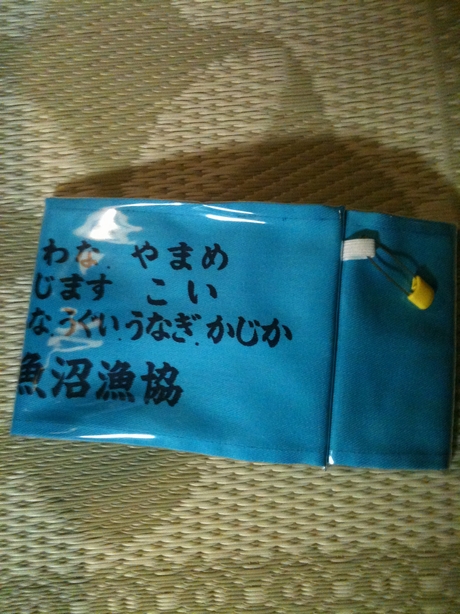 わな やまめ
じます こい
な.うぐい.うなぎ.かじか
魚沼漁協